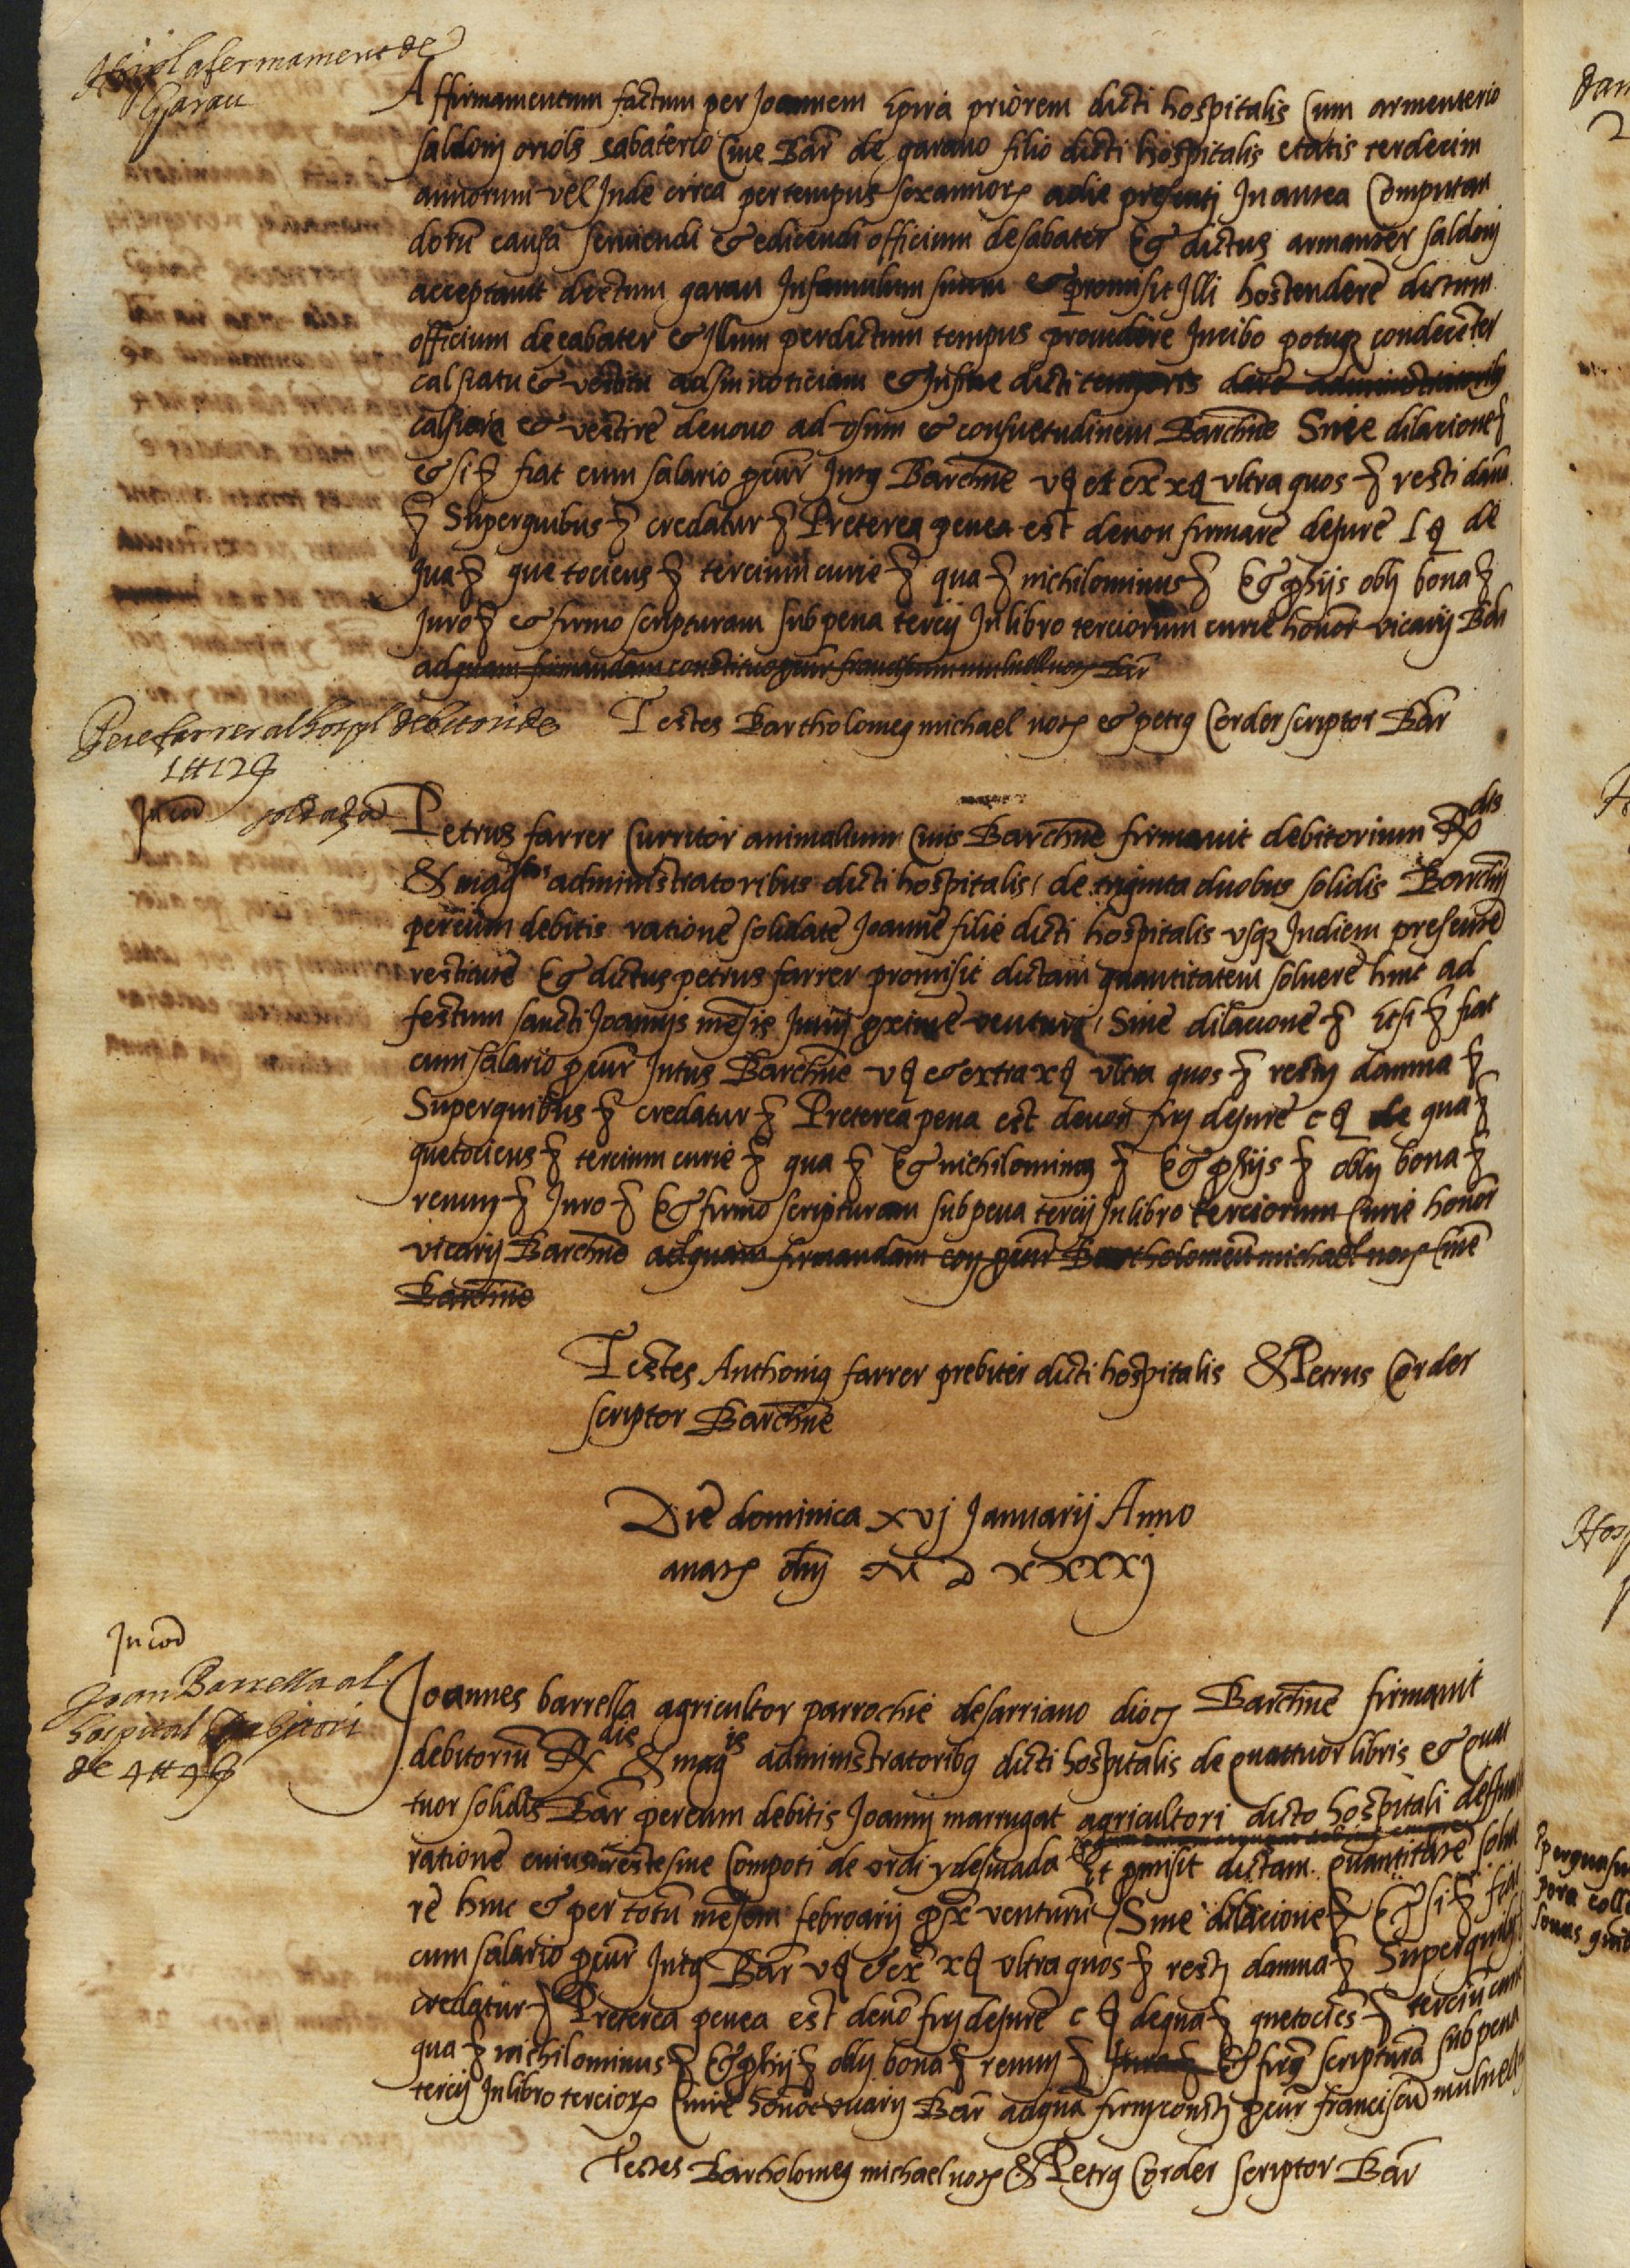 afermament de
Garau
Affirmamentum factum per Joannem Spira priorem dicti hospitalis Cum armenterio
saldonj oriols sabaterio Cive Bar de garauo filio dicti hospitalis etatis terdecim
annorum vel Inde circa per tempus sex annorȝ adie presentj In antea Computan
dorũ causa serviendi & edicendi officium de sabater Et dictus armenter saldonj
acceptauit dictum garau In famulum suum & promisit Illi hostendere dictum
officium de sabater & Illum per dictum tempus providere In cibo potuqȝ condecẽter
calsiatu & vestitu ad sui noticiam & In fine dicti temporis dare administratoribȝ
calsiare & vestire de nouo ad vsum & consuetudinem Barchne Sine dilacione &
& si & fiat cum salario pcur Intȝ Barchne vβ et ex xβ vltra quos & resti dana
& Super quibus & credatur & Preterea penea est de non firmare de jure Lβ de
qua & que tociens & tercium curie & qua & nichilominus & Et pȝijs oblj bona &
Juro & & firmo scripturam sub pena tercij In libro terciorum curie honor vicarij Bar
ad quam firmandam constituo pcur francischum mulnell norȝ Bar
Testes Bartholomeȝ michael norȝ & petrȝ Corder scriptor Bar
Pere farrer al hospl debitori de
1 ℔ 12 β
In cod soldada
Petrus farrer Curritor animalium Civis Barchne firmauit debitorium Rdis
& magcis administratoribus dicti hospitalis de triginta duobus solidis Barchnj
per eum debitis ratione solidate Joanne filie dicti hospitalis vsqȝ In diem presente
restitute Et dictus petrus farrer promisit dictam quantitatem soluere hinc ad
festum sancti Joannjs mẽsis Junij proxime venturi Sine dilacione & Et si & fiat
cum salario pcur Intus Barchne vβ & extra xβ vltra quos & restj danna &
Super quibus & credatur & Preterea pena est de non frȝ de jure cβ de qua &
que tociens & tercium curie & qua & Et nichilominȝ & Et pȝijs & oblj bona &
renunȝ & Juro & Et firmo scripturam sub pena tercij In libro terciorum Curie honor
vicarij Barchne ad quam firmandam conȝ pcur Bartholomeũ michael norȝ Cive
Barchine
Testes Anthoniȝ farrer prebiter dicti hospitalis & Petrus Corder
scriptor Barchne
Die dominica xvj Januarij Anno
a natȝ dnj M D xxxxj
In cod
Joan Barrella al
hospital debitori
de 4 ℔ 4 β
Joannes barrella agricultor parrochie de sarriano diocȝ Barchine firmauit
debitoriũ Rdis & magis administratoribȝ dicti hospitalis de quattuor libris & qua
tuor solidis Bar per eum debitis Joannj marrugat agricultori dicto hospitali
ratione cuiusdam reste sive Compoti de ordi y de sivada Et pmisit dictam quantitatẽ solve
re hinc & per totũ mẽsem febroarij px venturũ Sine dilacione & Et si & fiat
cum salario pcur Intȝ Bar vβ & ex xβ vltra quos & restj danna & Super quibȝ
credatur & Preterea penea est de nõ frȝ de jure cβ de qua & que tocies & terciũ curie
qua & nichilominus & Et pȝij & oblj bona & renunȝ & Juro & Et firȝ scripturã sub pena
tercij In libro terciorȝ Curie honor vicarij Bar ad quã firmȝ constȝ pcur franciscũ mulnell
Testes Bartholomeȝ michael norȝ & Petrȝ Corder scriptor Bar